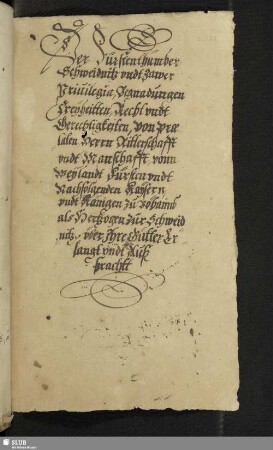 Der Fürstenthumber
Schweidnitz vndt Jawer
Priuilegia, Begnadungen
Freyheitten, Recht vndt
Gerechtigkeiten, von Præ
laten Herrn Ritterschafft
vndt Manschafft vonn
Weylandt Fürsten vndt
Nachfolgenden Kaysern
vndt Königen zu Böhaimb
als Hertzogen Zur Schweid
nitz, vber Ihre Gütter Er
langt vndt Auß
bracht
SLUB